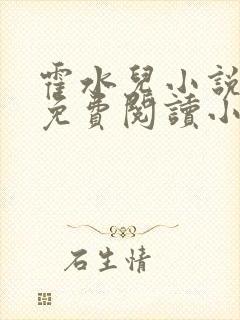 霍水兒小説
免費閱讀小
石生情